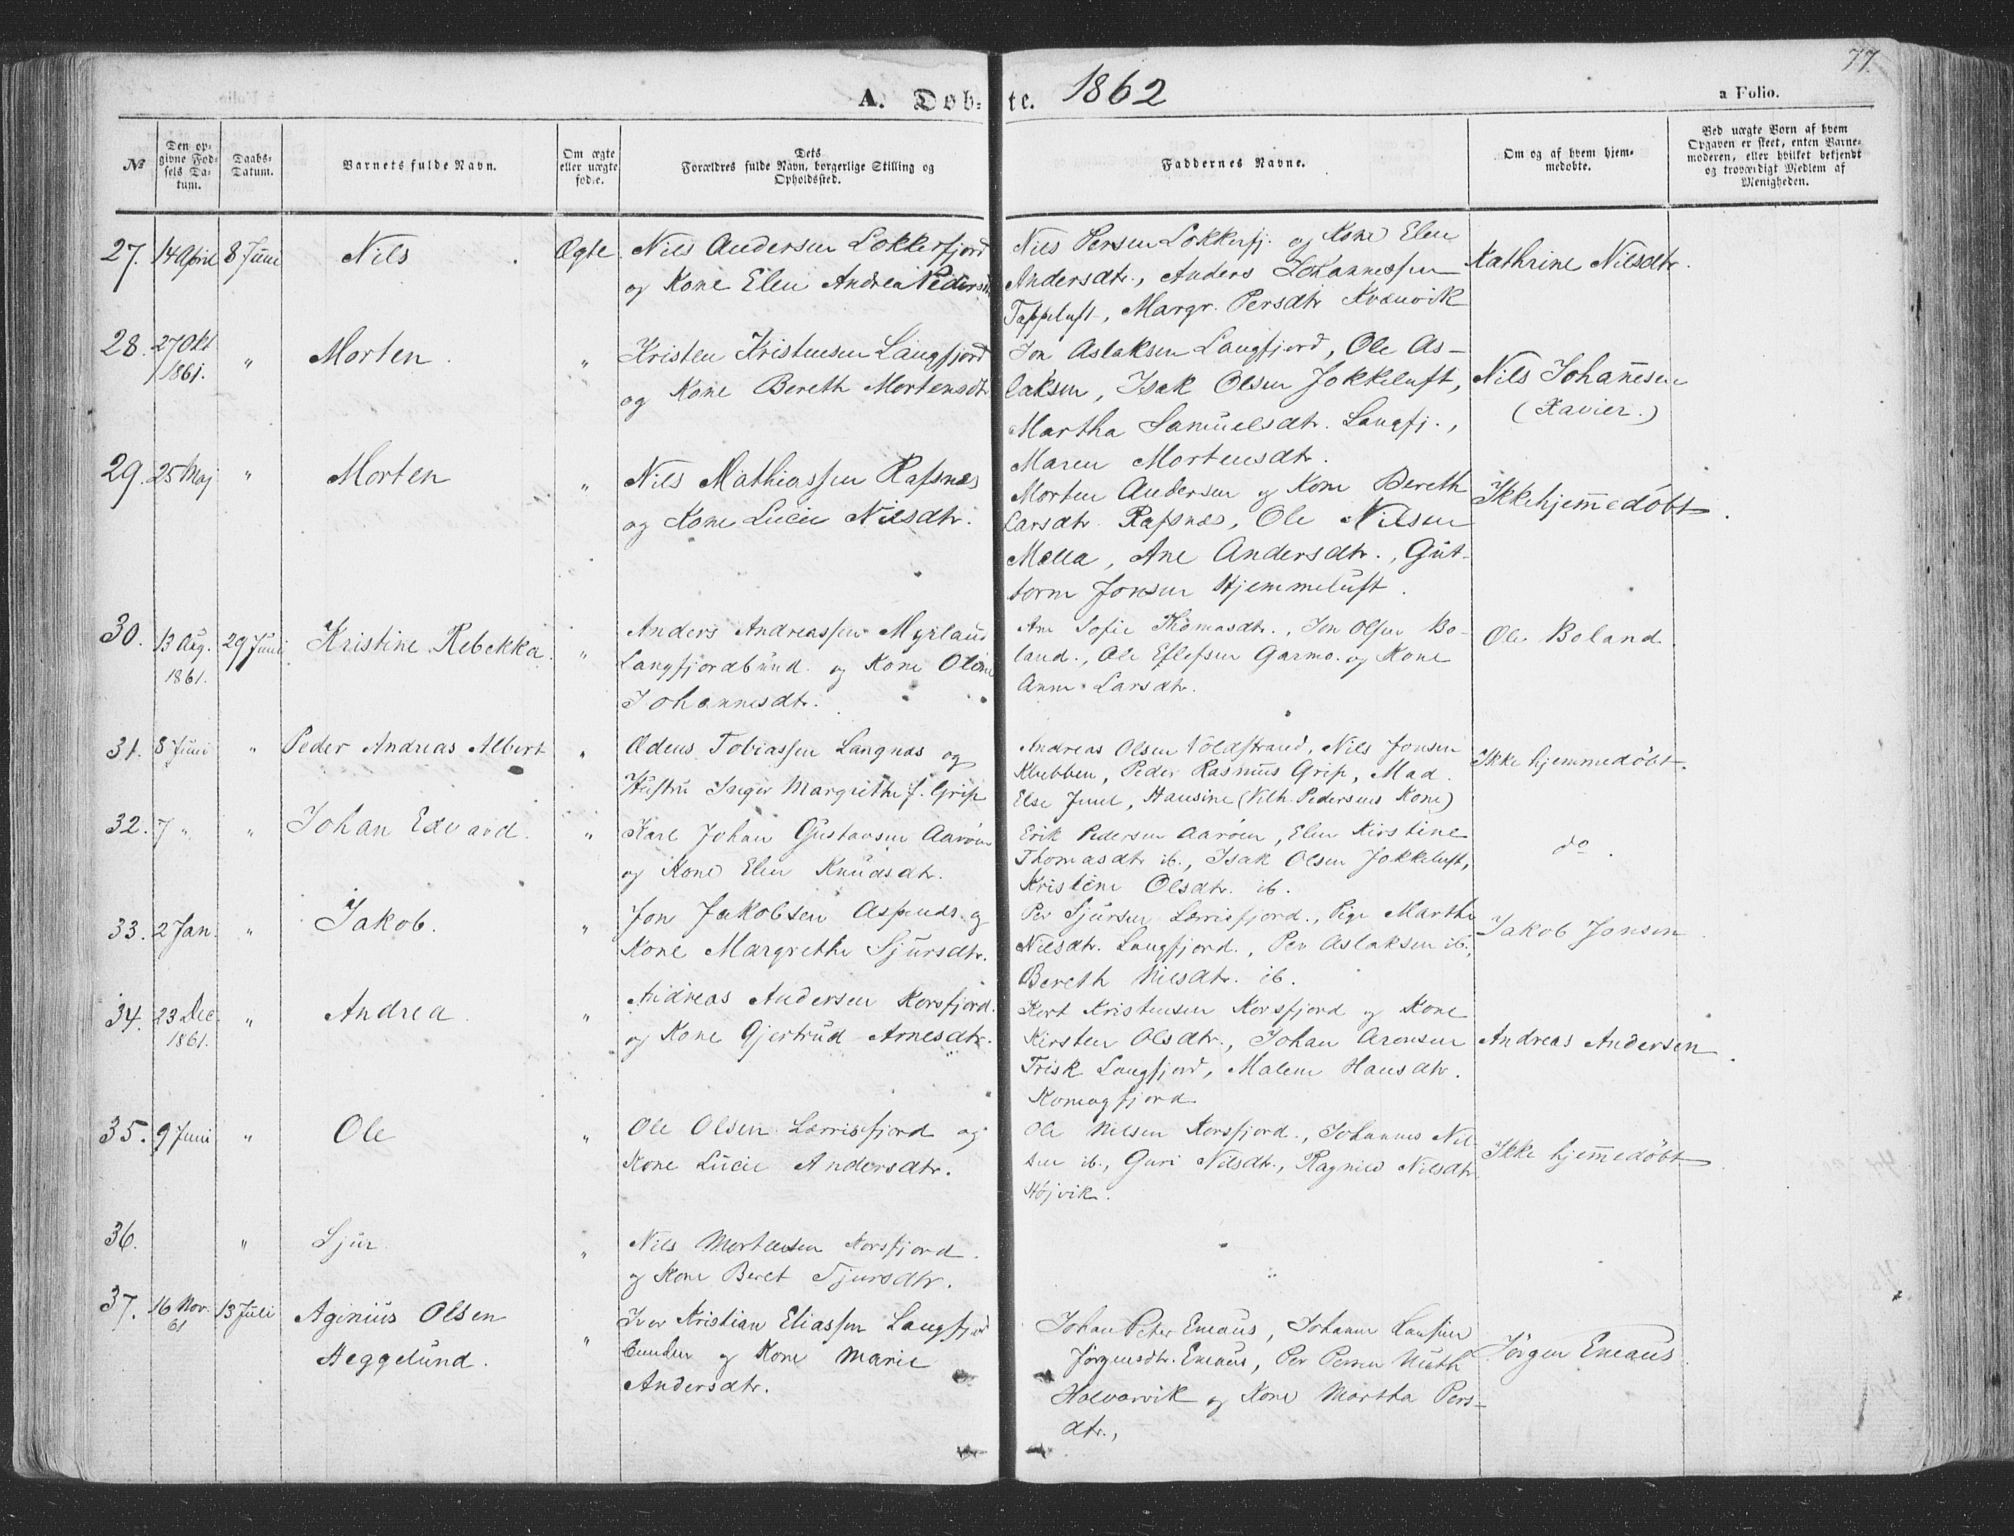 77.
A. Døb- te. 1862
a Folio.
№
Den op-
givne Fød-
sels Da-
tum.
Daabs-
Datum.
Barnets fulde Navn.
Om ægte
eller uægte
fødte.
Dets
Forældres fulde Navn, borgerlige Stilling og
Opholdssted.
Faddernes Navne.
Om og af hvem hjem-
medøbte.
Ved uægte Børn af hvem
Opgaven er skeet, enten Barne-
moderen, eller hvilket bekjendt
og troværdigt Medlem af
Menigheden.
27. 14 April 8 Juni Nils Ægte
Nils Andersen Lokkerfjord
og Kone Elen Andrea Pedersdtr
Nils Persen Lokkerfj. og Kone Elen
Andersdtr., Anders Johannessen
Tappeluft, Margr. Persdtr Kvænvik
Kathrine Nilsdtr.
28. 27 Okt
1861. " Morten "
Kristen Kristensen Langfjord
og Kone Bereth Mortensdtr
Jon Aslaksen Langfjord, Ole As-
laksen, Isak Olsen Jokkeluft,
Martha Samuelsdtr. Langfj.,
Maren Mortensdtr.
Nils Johannesen
(Xavier.)
29. 25 Maj " Morten "
Nils Mathiassen Rafsnæs
og Kone Lucie Nilsdtr.
Morten Andersen og Kone Bereth
Larsdtr. Rafsnæs, Ole Nilsen
Mella, Ane Andersdtr., Gut-
torm Jonsen Hjemmeluft.
Ikke hjemmedøbt.
30. 13 Aug.
1861. 29 Juni Kristine Rebekka. "
Anders Andreassen Myrland
Langfjordbund. og Kone Oline
Johannesdtr.
Ane Sofie Thomasdtr., Jon Olsen Bo-
land., Ole Ellefsen Garmo. og Kone
Anne Larsdtr.
Ole Boland.
31. 8 Juni " Peder Andreas Albert "
Ædens Tobiassen Langnæs og
Hustru Inger Margrethe f. Grip
Andreas Olsen Voldstrand, Nils Jonsen
Klubben, Peder Rasmus Grip, Mad.
Else Juul, Hansine (Vilh. Pedersens Kone)
Ikke hjemmedøbt.
32. 7 " " Johan Edvard. "
Karl Johan Gustavsen Aarøen
og Kone Elen Knudsdtr.
Erik Pedersen Aarøen, Elen Kirstine
Thomasdtr ib., Isak Olsen Jokkeluft,
Kristine Olsdtr. ib.
do.
33. 2 Jan. " Jakob. "
Jon Jakobsen Aspenæs og
Kone Margrethe Sjursdtr.
Per Sjursen Lærrisfjord., Pige Marthe
Nilsdtr. Langfjord., Per Aslaksen ib.,
Bereth Nilsdtr. ib.
Jakob Jonsen.
34. 23 Dec.
1861. " Andrea. "
Andreas Andersen Korsfjord.
og Kone Gjertrud Arnesdtr.
Kort Kristensen Korsfjord og Kone
Kirsten Olsdtr., Johan Aronsen
Frisk Langfjord, Malene Hansdtr.
Komagfjord
Andreas Andersen.
35. 9 Juni " Ole "
Ole Olsen Lærrisfjord og
Kone Lucie Andersdtr.
Ole Nilsen Korsfjord., Johannes Nil-
sen ib., Guri Nilsdtr., Ragnild Nilsdtr
Højvik.
Ikke hjemmedøbt.
36. " Sjur. "
Nils Mortensen Korsfjord.
og Kone Beret Sjursdtr.
"
37. 16 Nov.
61 13 Juli Aginius Olsen
Heggelund. "
Iver Kristian Eliassen Langfjord
bunden og Kone Marie
Andersdtr.
Johan Peter Emaus, Johanne
Jørgensdtr. Emaus, Per Persen
Halvorvik og Kone Martha Pers-
dtr.,
Jørgen Emaus.